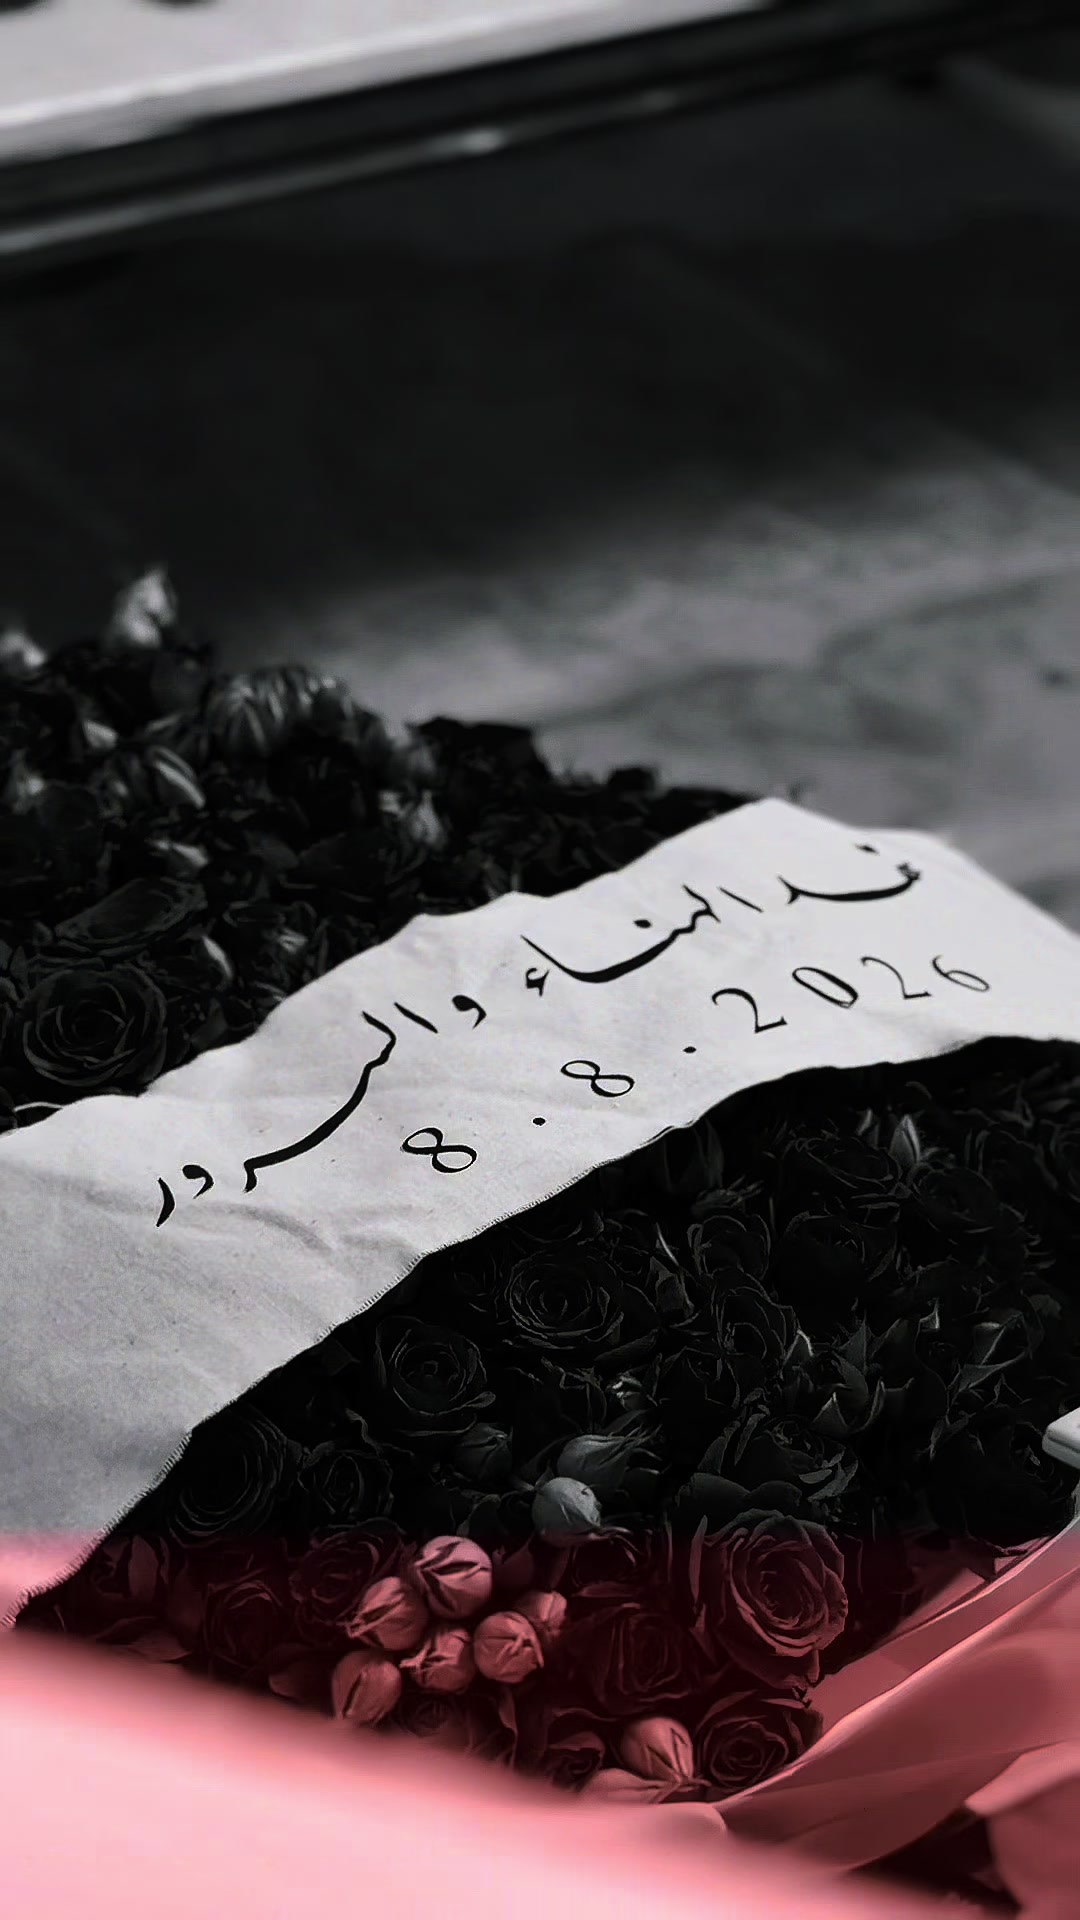 غدا الهناء والسرور
8 . 8 . 2026